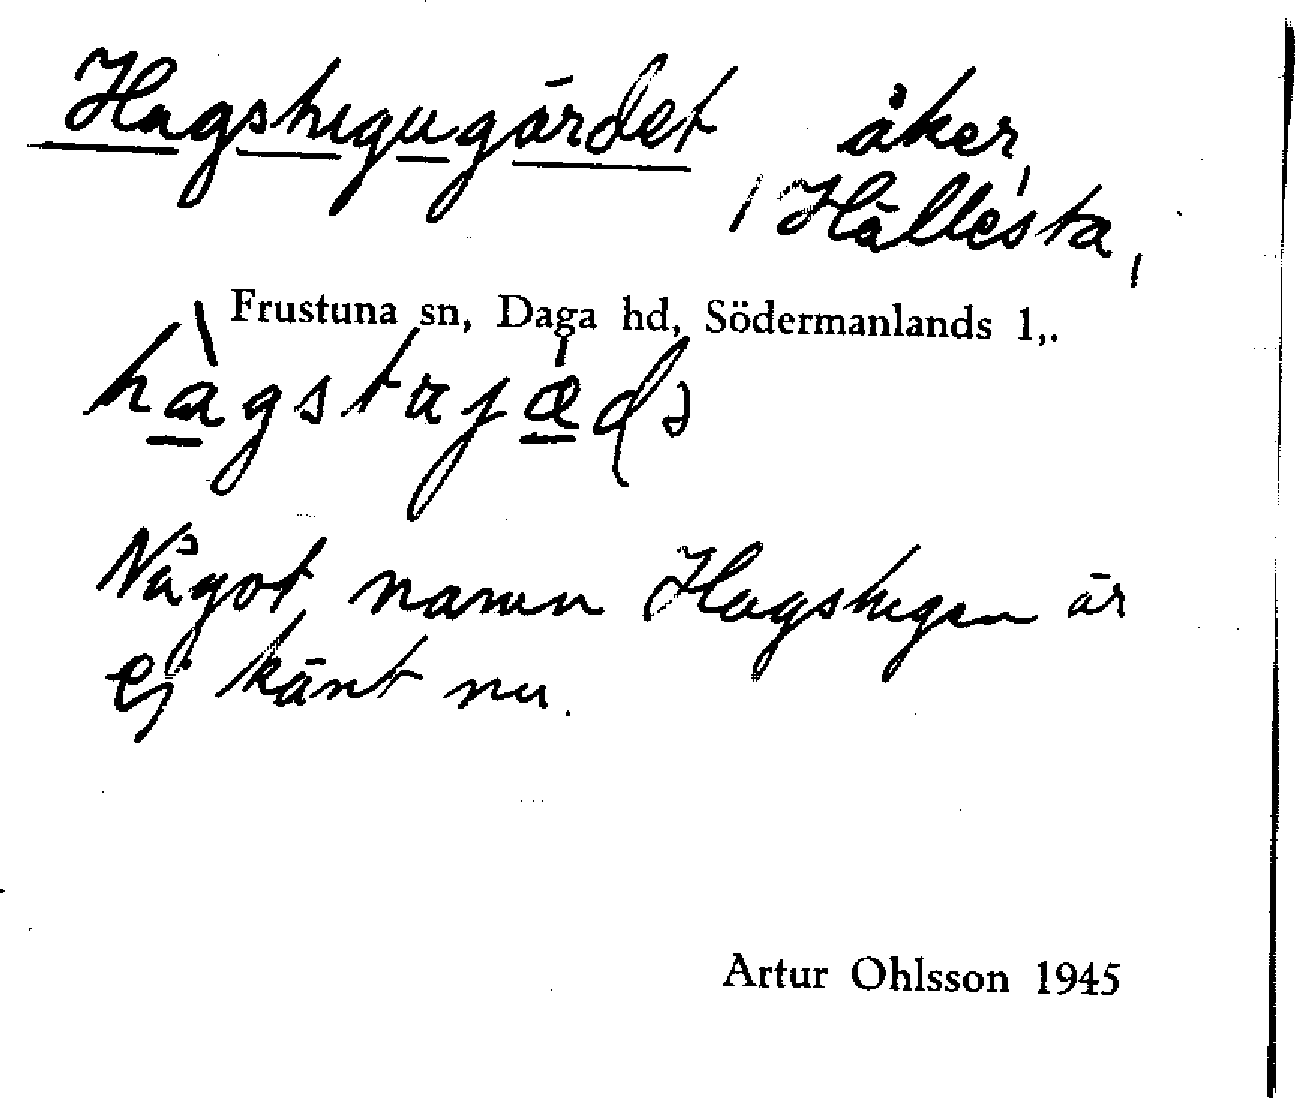 Hagstugugärdet åker,
i Hållesta,
Frustuna sn, Daga hd, Södermanlands l,.
Något namn Hagstugan är
ej känt nu.
Artur Ohlsson 1945